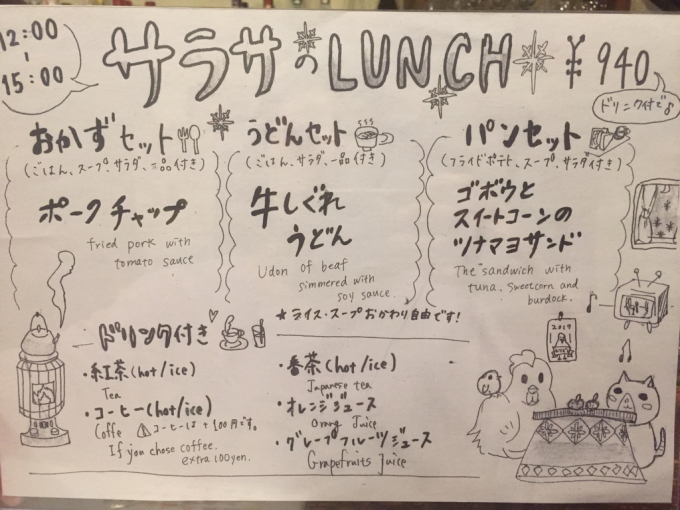 12:00
-
15:00
サラサのLUNCH ¥940
ドリンク付で♪
おかずセット
(ごはん、スープ、サラダ、一品付き)
ポークチャップ
fried pork with
tomato sauce
うどんセット
(ごはん、サラダ、一品付き)
牛しぐれ
うどん
Udon of beaf
simmered with
soy sauce.
パンセット
(フライドポテト、スープ、サラダ付き)
ゴボウと
スイートコーンの
ツナマヨサンド
The sandwich with
tuna, sweetcorn and
burdock.
★ライス・スープおかわり自由です!
ドリンク付き
・紅茶(hot/ice)
Tea
・コーヒー(hot/ice)
Coffe ⚠コーヒーは+100円です。
If you chose coffee.
extra 100yen.
・番茶(hot/ice)
Japanese tea
・オレンジジュース
Orang Juice
・グレープフルーツジュース
Grapefruits Juice
2017